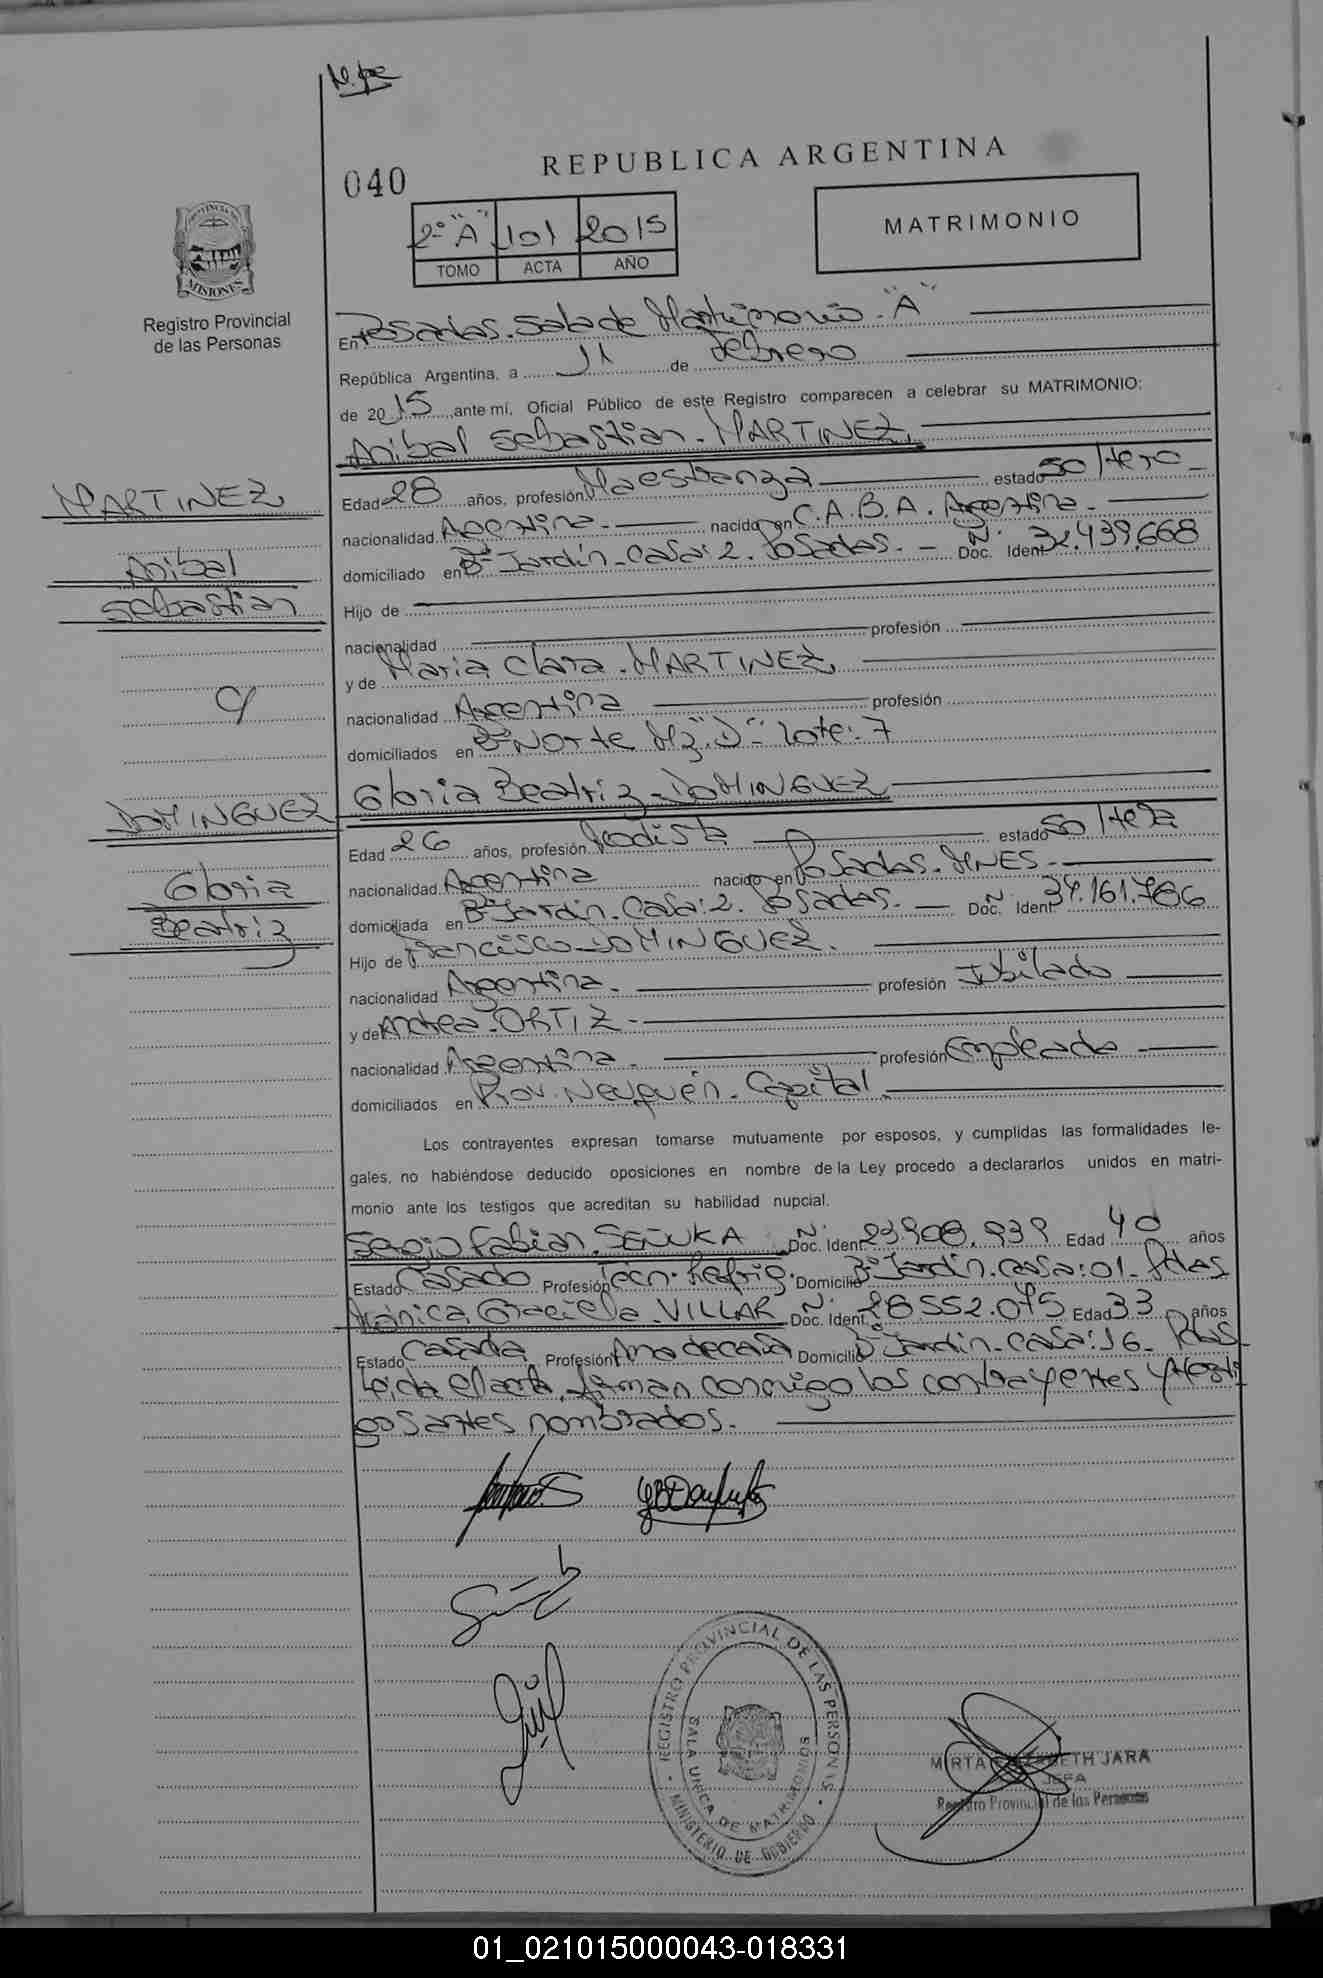 040
REPUBLICA ARGENTINA
2º "A" 101 2015
TOMO ACTA AÑO
MATRIMONIO
PROVINCIA DE
MISIONES
Registro Provincial
de las Personas
En Posadas. Sala de Matrimonio. "A"
República Argentina, a 11 de Febrero
de 2015 ante mí, Oficial Público de este Registro comparecen a celebrar su MATRIMONIO:
Anibal Sebastian. MARTINEZ.
MARTINEZ
Anibal
Sebastian
Edad 28 años, profesión Maestranza estado Soltero
nacionalidad Argentina. nacido en C.A.B.A. Argentina.
domiciliado en Bº Jardín. Casa: 2. Posadas. Nº Doc. Ident 32.439.668
Hijo de
nacionalidad profesión
y de Maria Clara. MARTINEZ
nacionalidad Argentina profesión
domiciliados en Bº Norte Mz. "D" Lote: 7
c/
DOMINGUEZ
Gloria
Beatriz
Gloria Beatriz DOMINGUEZ
Edad 26 años, profesión Modista estado Soltera
nacionalidad Argentina nacido en Posadas. MNES.
domiciliada en Bº Jardin. Casa: 2. Posadas. Nº Doc. Ident 34.161.786
Hijo de Francisco DOMINGUEZ.
nacionalidad Argentina. profesión Jubilado
y de Andrea ORTIZ
nacionalidad Argentina. profesión Empleada
domiciliados en Prov. Neuquén. Capital.
Los contrayentes expresan tomarse mutuamente por esposos, y cumplidas las formalidades le-
gales, no habiéndose deducido oposiciones en nombre de la Ley procedo a declararlos unidos en matri-
monio ante los testigos que acreditan su habilidad nupcial.
Sergio Fabian. SEÑUKA Nº Doc. Ident 23.908.939 Edad 40 años
Estado Casado Profesión Tecn. Refrig. Domicilio Bº Jardín. Casa: 01. Pdas
Mónica Graciela. VILLAR Nº Doc. Ident 28.552.075 Edad 33 años
Estado Casada Profesión Ama de casa Domicilio Bº Jardín. Casa: 16. Pdas
Leida el acta, firman conmigo los contrayentes y testi
gos antes nombrados.
REGISTRO PROVINCIAL DE LAS PERSONAS
SALA UNICA DE MATRIMONIOS
MINISTERIO DE GOBIERNO
MIRTA ELIZABETH JARA
JEFA
Registro Provincial de las Personas
01_021015000043-018331